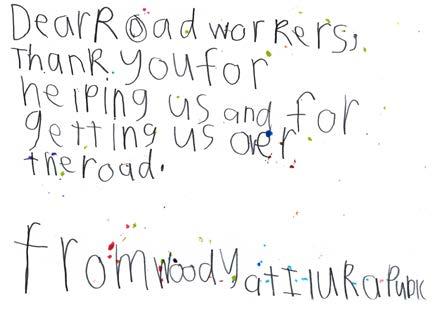 Dear Road workers,
Thank you for
helping us and for
getting us over
the road.
from Woody at Iluka Public